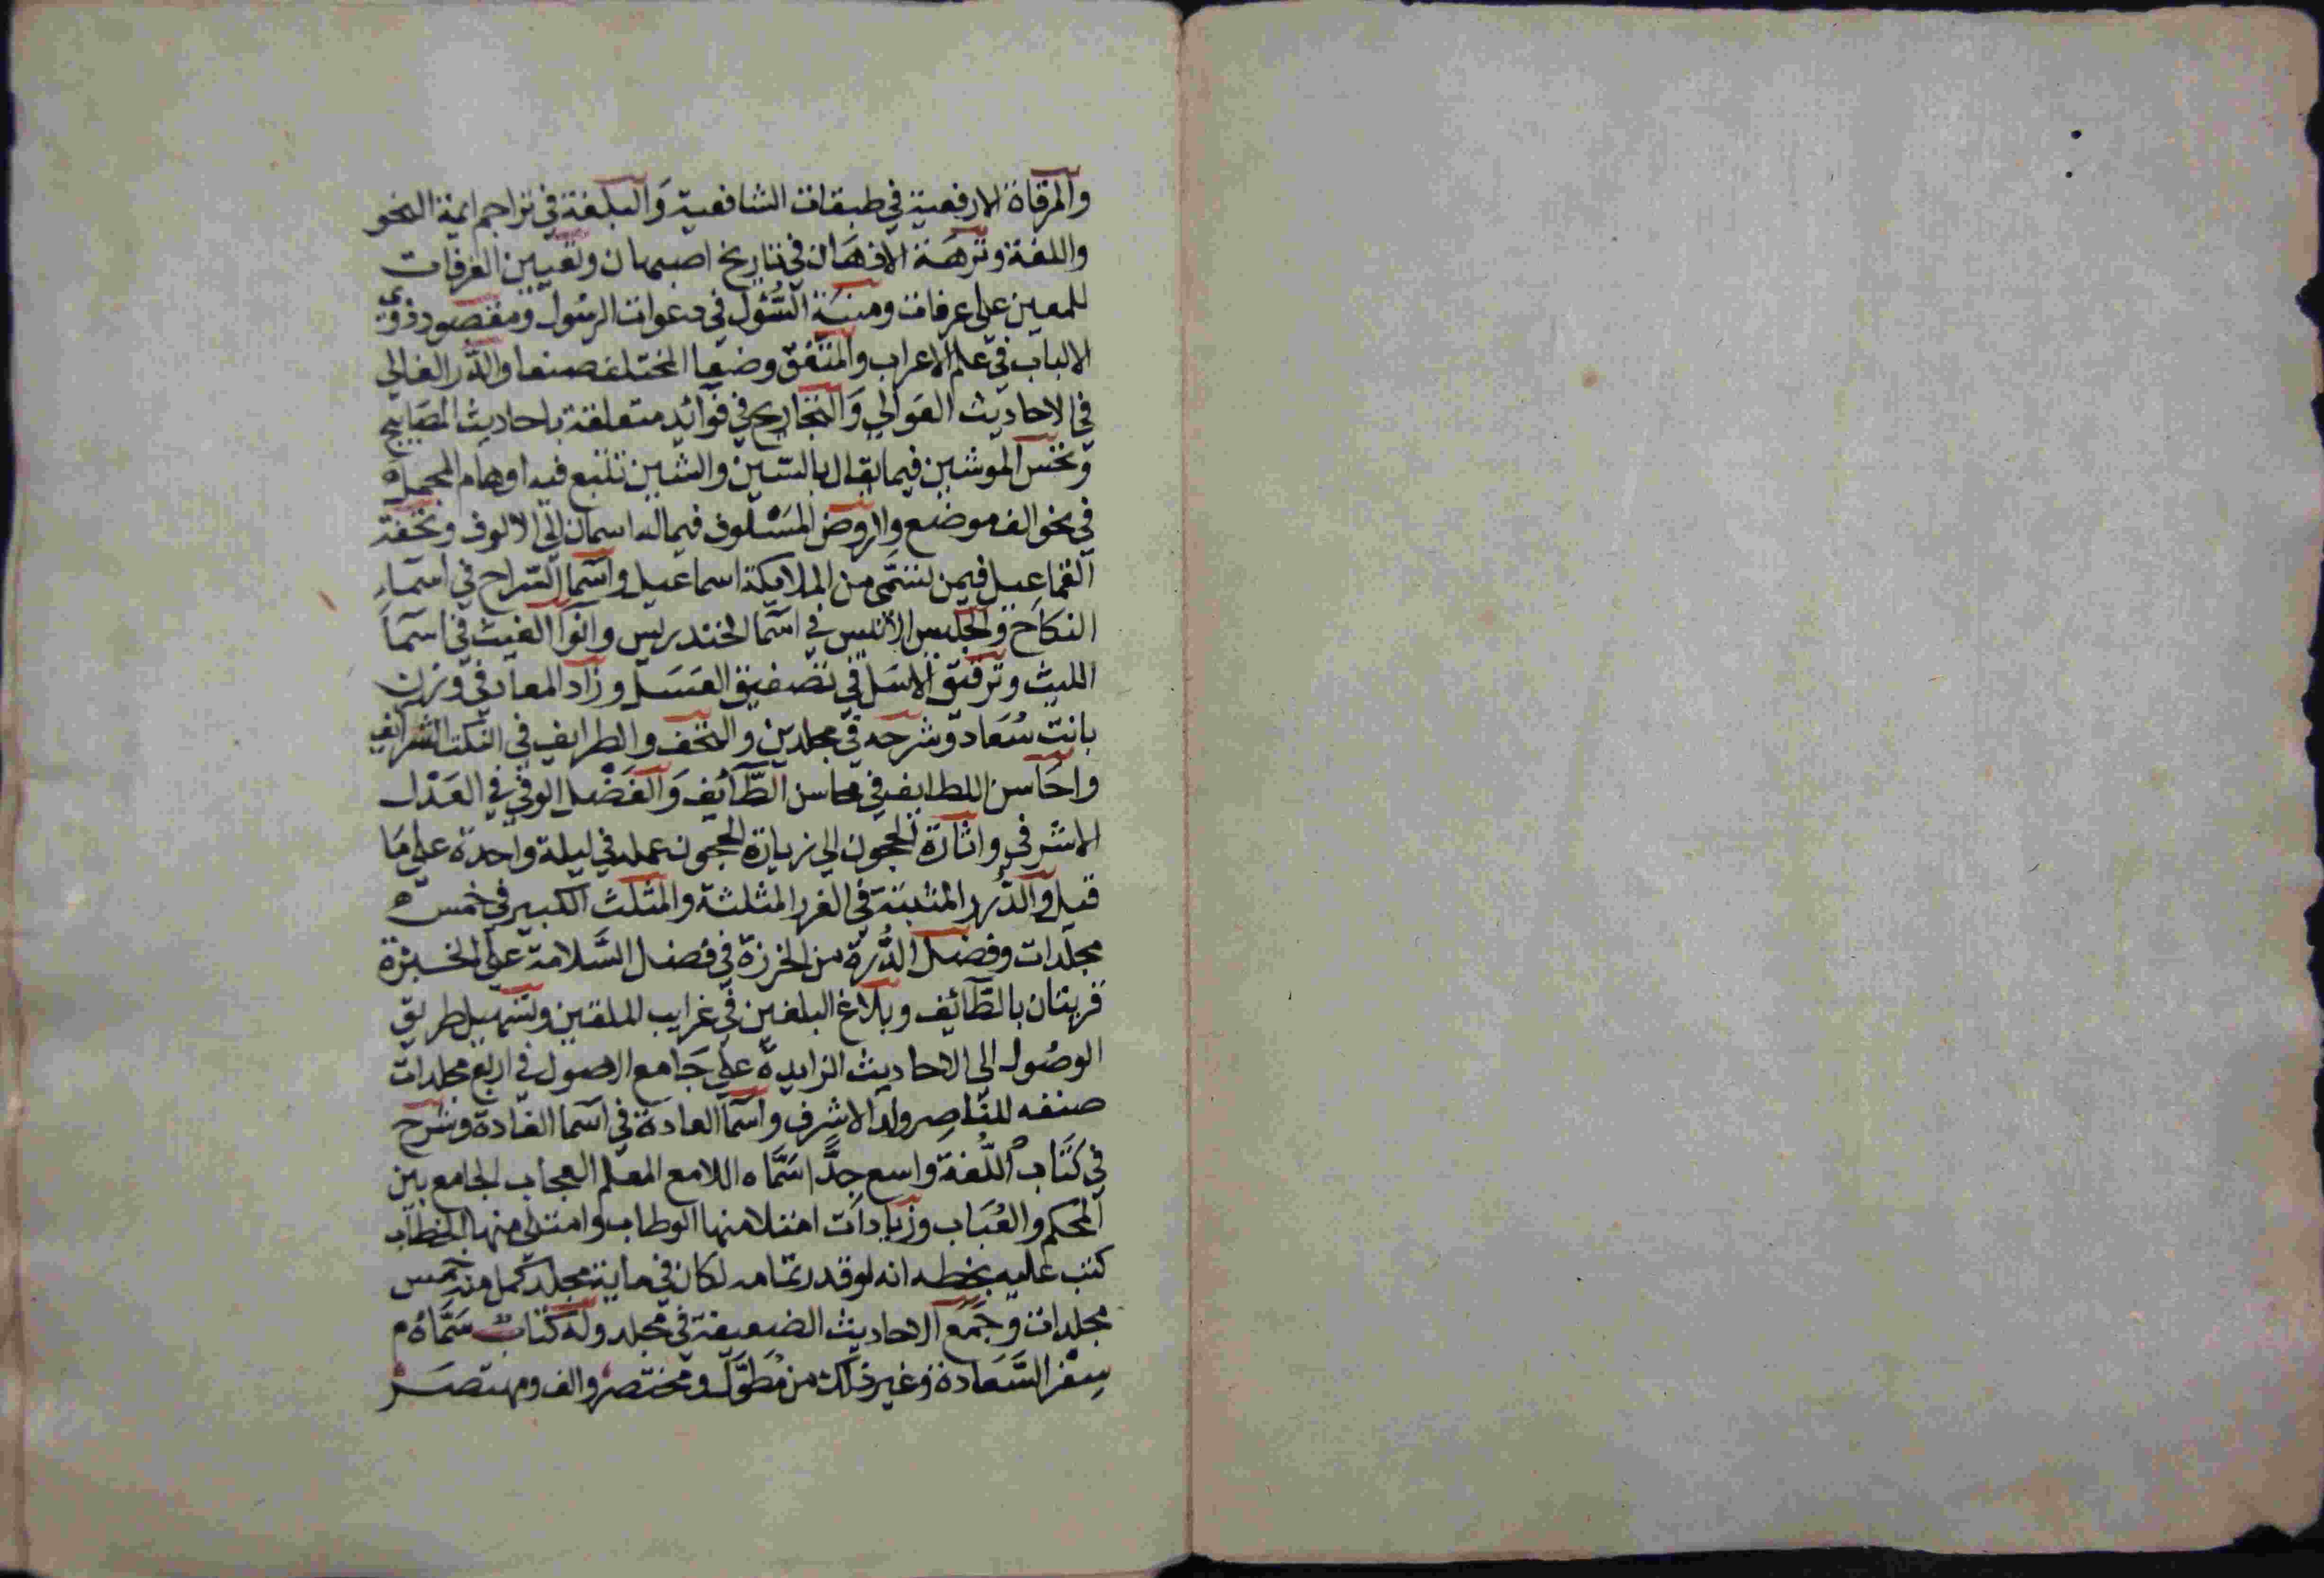 والمرقاة الارفعية في طبقات الشافعية وَالبلغة في تراجم ايمة النحو
واللغة ونزهة الاذهان في تاريخ اصبهان وتعيين الغرفات
للمعين على عرفات ومنية السُّؤل في دعوات الرسُول ومقصود ذوي
الالباب في علم الاعراب والمتفق وضعا المختلف صنعا والدُّر الغالي
في الاحاديث العَوالي وَالتجاريح في فوائد متعلقة باحاديث المصَابيح
وتخس الموشين فيما يقال بالسّين والشين تتبع فيه اوهام المجمل
في نحو الف موضع والروض المسْلوف فيما له اسمان الى الالوف وتحفة
القماعيل فيمن تسَمَّى من الملايكة اسماعيل واسَما السّراح في اسَماءِ
النكاح وَالجليس الانيس في اسَما الخندريس وانوا الغيث في اسَمآ
الليث وترقيق الاسَل في تصفيق العسَل وزاد المعاد في وزن
بانت سُعَاد وشرحه في مجلدين والتحف والطرايف في النكت الشرايف
واحَاسن اللطايف في محاسن الطّآئف وَالفَضْل الوفي في العَدْل
الاشرفي واثارَة الحجون الى زيارة الحجون عمله في ليلة واحدة على مَا
قيل والدُّرر المثبتة في الغرر المثلثة والمثلث الكبير في خمس
مجلّدات وفضل الدُّرة من الخرزة في فضل السَّلامة على الخبزة
قريتان بالطّآئف وبلاغ البلغين في غرايب الملقين وتسهيل طريق
الوصُول الى الاحاديث الزايدة على جَامع الاصول في اربع مجلدات
صنفه للنّاصِر ولد الاشرف واسَما العادة في اسَما الغادة وشرح
في كتَاب اللُّغة واسع جدًّا سَمَّاه اللامع المعلم العجاب الجامع بين
المحكم والعُبَاب وزيادات امتلا منها الوطاب وامتلى منها الخطاب
كتب عليه بخطه انه لو قدر تمامه لكان في ماية مجلد كمل منه خمس
مجلدات وجَمَع الاحاديث الضعيفة في مجلد وله كتاب سَمَّاهُ
سِفْر السَّعَادة وَغير ذلك من مُطوَّل ومختصر والف ومهتصر